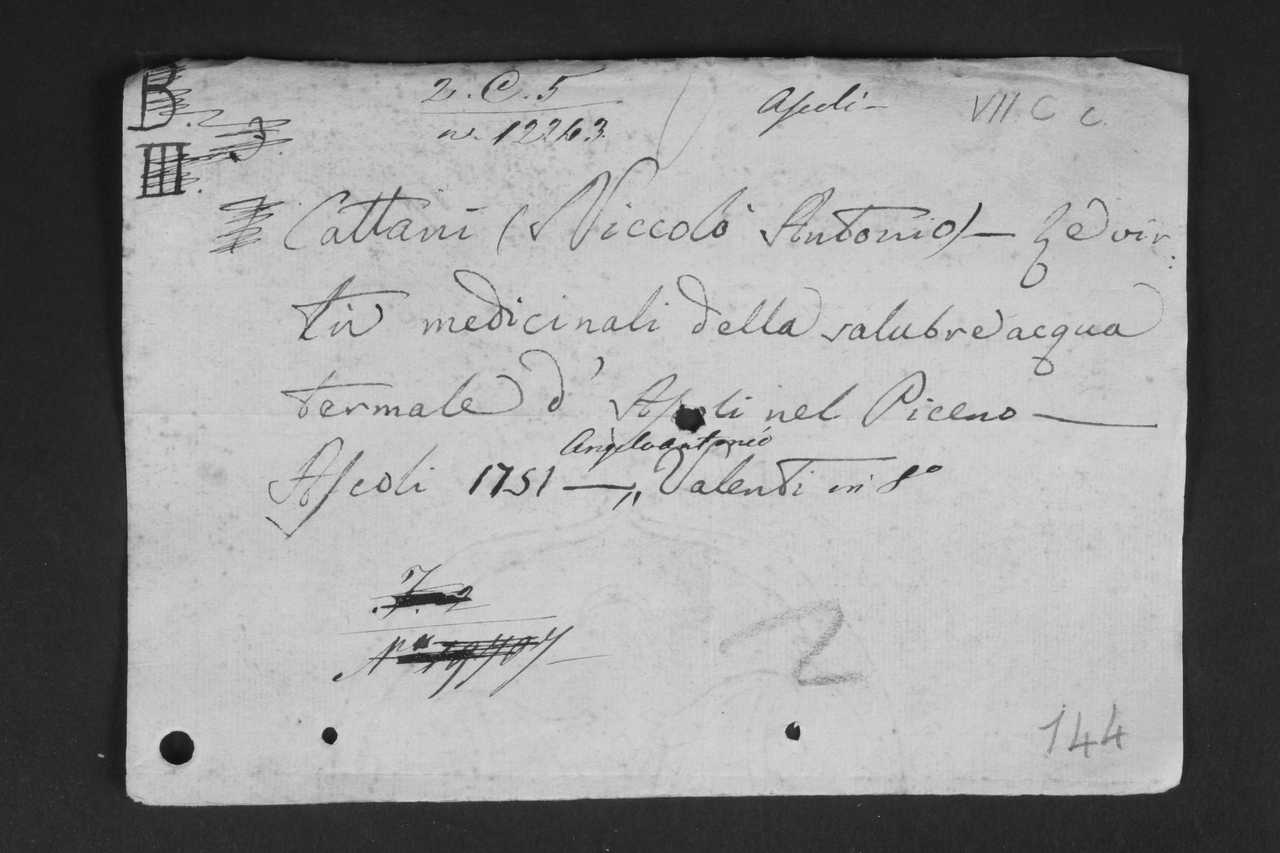 B.
2. C. 5
n. 12263
Ascoli -
VII C c.
III.
3.
Cattani (Niccolò Antonio) - Le vir:
tù medicinali della salubre acqua
termale d' Ascoli nel Piceno —
Angeloantonio
Ascoli 1751 — „ Valenti in 8°
2
144